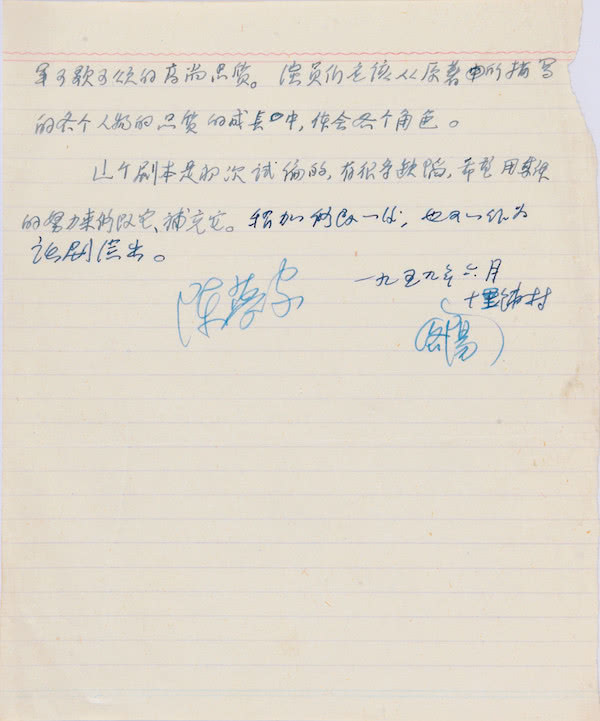 可歌可颂的高尚品质。演员们应该从原著中所描写
的各个人物的品质的成长中,体会各个角色。
这个剧本是初次试编的,有很多缺陷,希望用集体
的努力来修改它、补充它。稍加修改一下,也可以作为
话剧演出。
陈梦家
一九五九年六月
十里铺村
(洛阳)